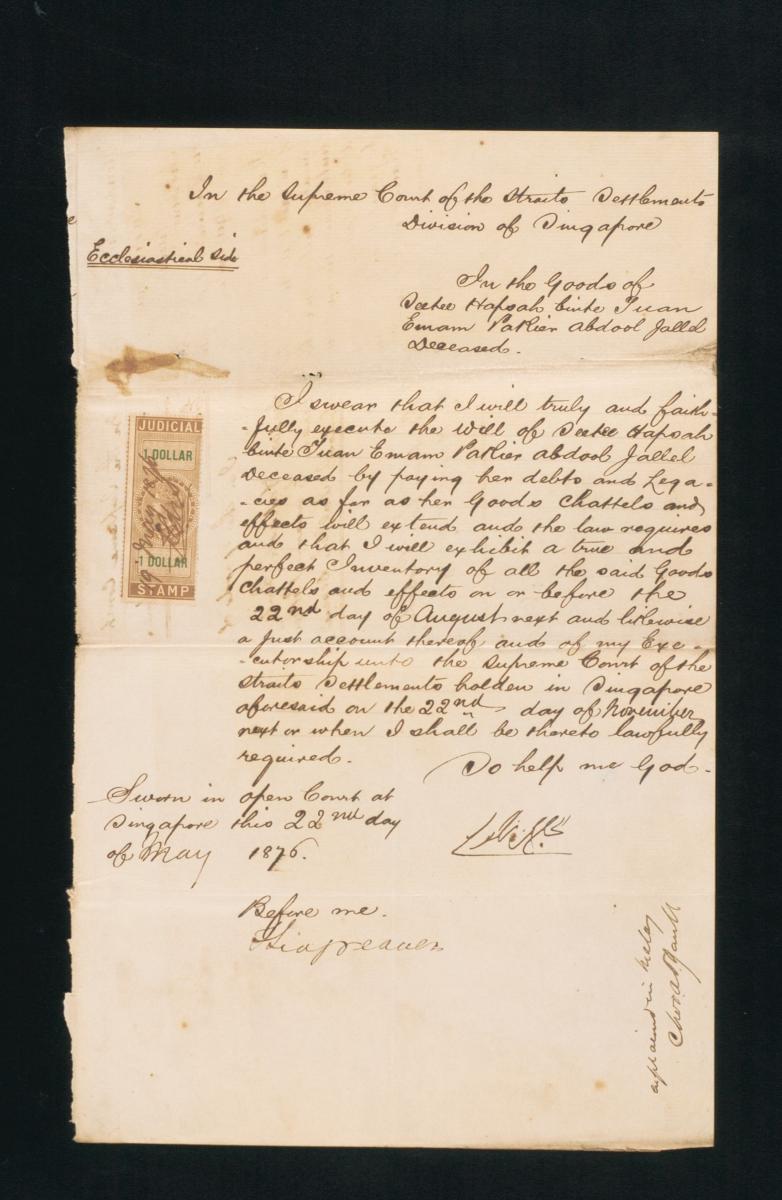 In the Supreme Court of the Straits Settlements
Division of Singapore
Ecclesiastical Side
In the Goods of
Seetee Hapsah binte Tuan
Emam Patkier abdool Jallel
Deceased.
I swear that I will truly and faith-
-fully execute the Will of Seetee Hapsah
binte Tuan Emam Patkier abdool Jallel
Deceased by paying her debts and Lega-
-cies as far as her Goods Chattels and
effects will extend and the law requires
and that I will exhibit a true and
perfect Inventory of all the said Goods
Chattels and effects on or before the
22nd day of August next and likewise
a just account thereof and of my Exe-
-cutorship unto the Supreme Court of the
Straits Settlements holden in Singapore
aforesaid on the 22nd day of November
next or when I shall be thereto lawfully
required.
So help me God.
JUDICIAL
1 DOLLAR
May 1876
1 DOLLAR
STAMP
Sworn in open Court at
Singapore this 22nd day
of May 1876.
Before me.
explained in Malay